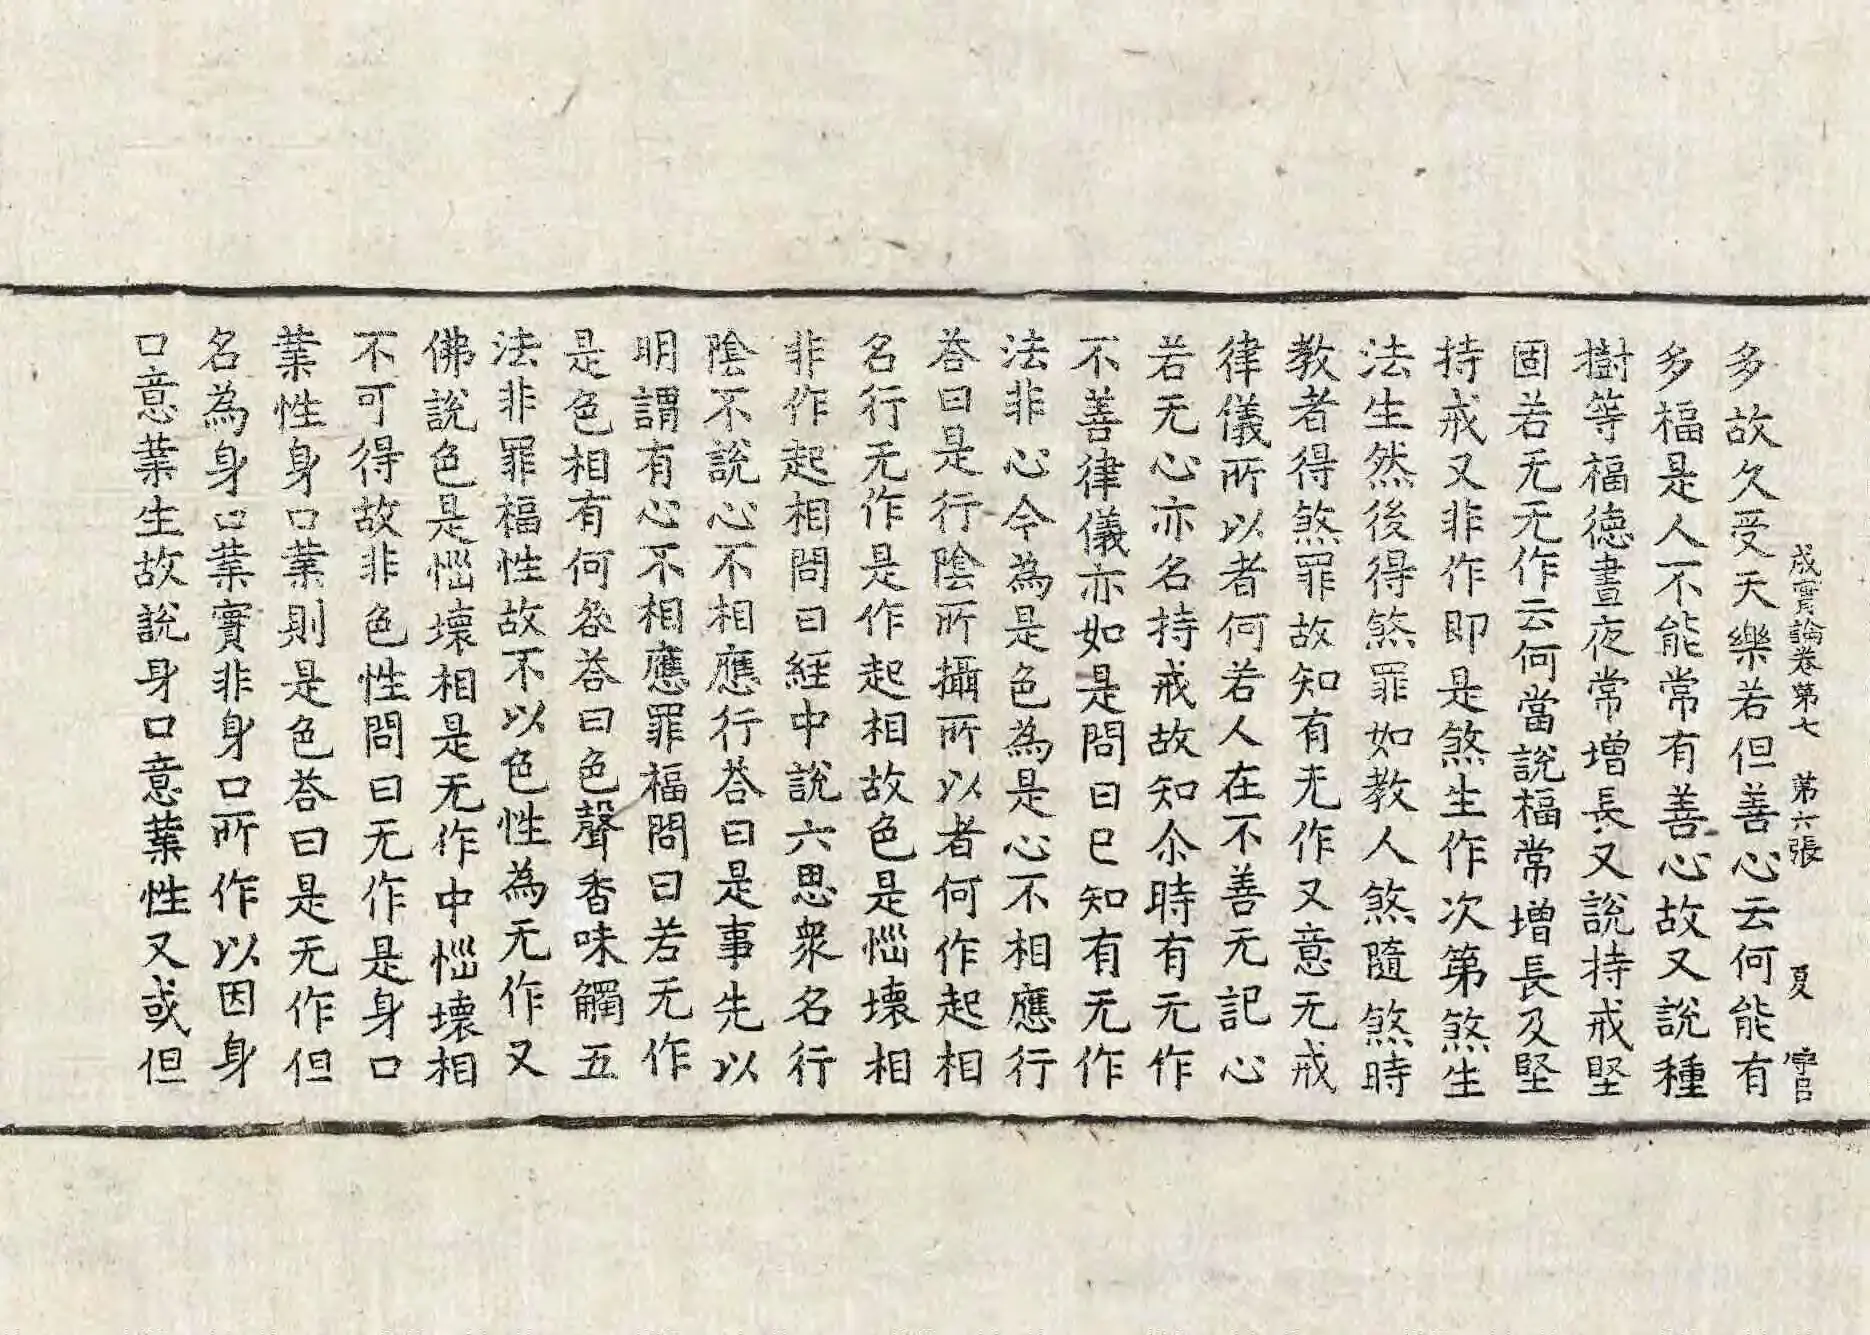 成實論卷第七　第六張　夏
多故久受天樂若但善心云何能有
多福是人不能常有善心故又說種
樹等福德晝夜常增長又說持戒堅
固若无无作云何當說福常增長及堅
持戒又非作即是煞生作次第煞生
法生然後得煞罪如教人煞隨煞時
教者得煞罪故知有无作又意无戒
律儀所以者何若人在不善无記心
若无心亦名持戒故知尒時有无作
不善律儀亦如是問曰已知有无作
法非心今為是色為是心不相應行
荅曰是行陰所攝所以者何作起相
名行无作是作起相故色是惱壞相
非作起相問曰經中說六思衆名行
陰不說心不相應行荅曰是事先以
明謂有心不相應罪福問曰若无作
是色相有何咎荅曰色聲香味觸五
法非罪福性故不以色性為无作又
佛說色是惱壞相是无作中惱壞相
不可得故非色性問曰无作是身口
業性身口業則是色荅曰是无作但
名為身口業實非身口所作以因身
口意業生故說身口意業性又或但